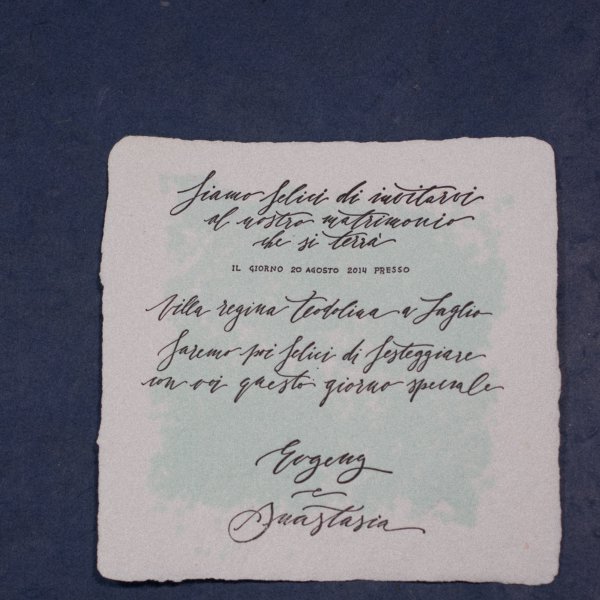 Siamo felici di invitarvi
al nostro matrimonio
che si terrà
IL GIORNO 20 AGOSTO 2014 PRESSO
Villa regina Teodolina a Laglio
Saremo poi felici di festeggiare
con voi questo giorno speciale
Evgeny
e
Anastasia